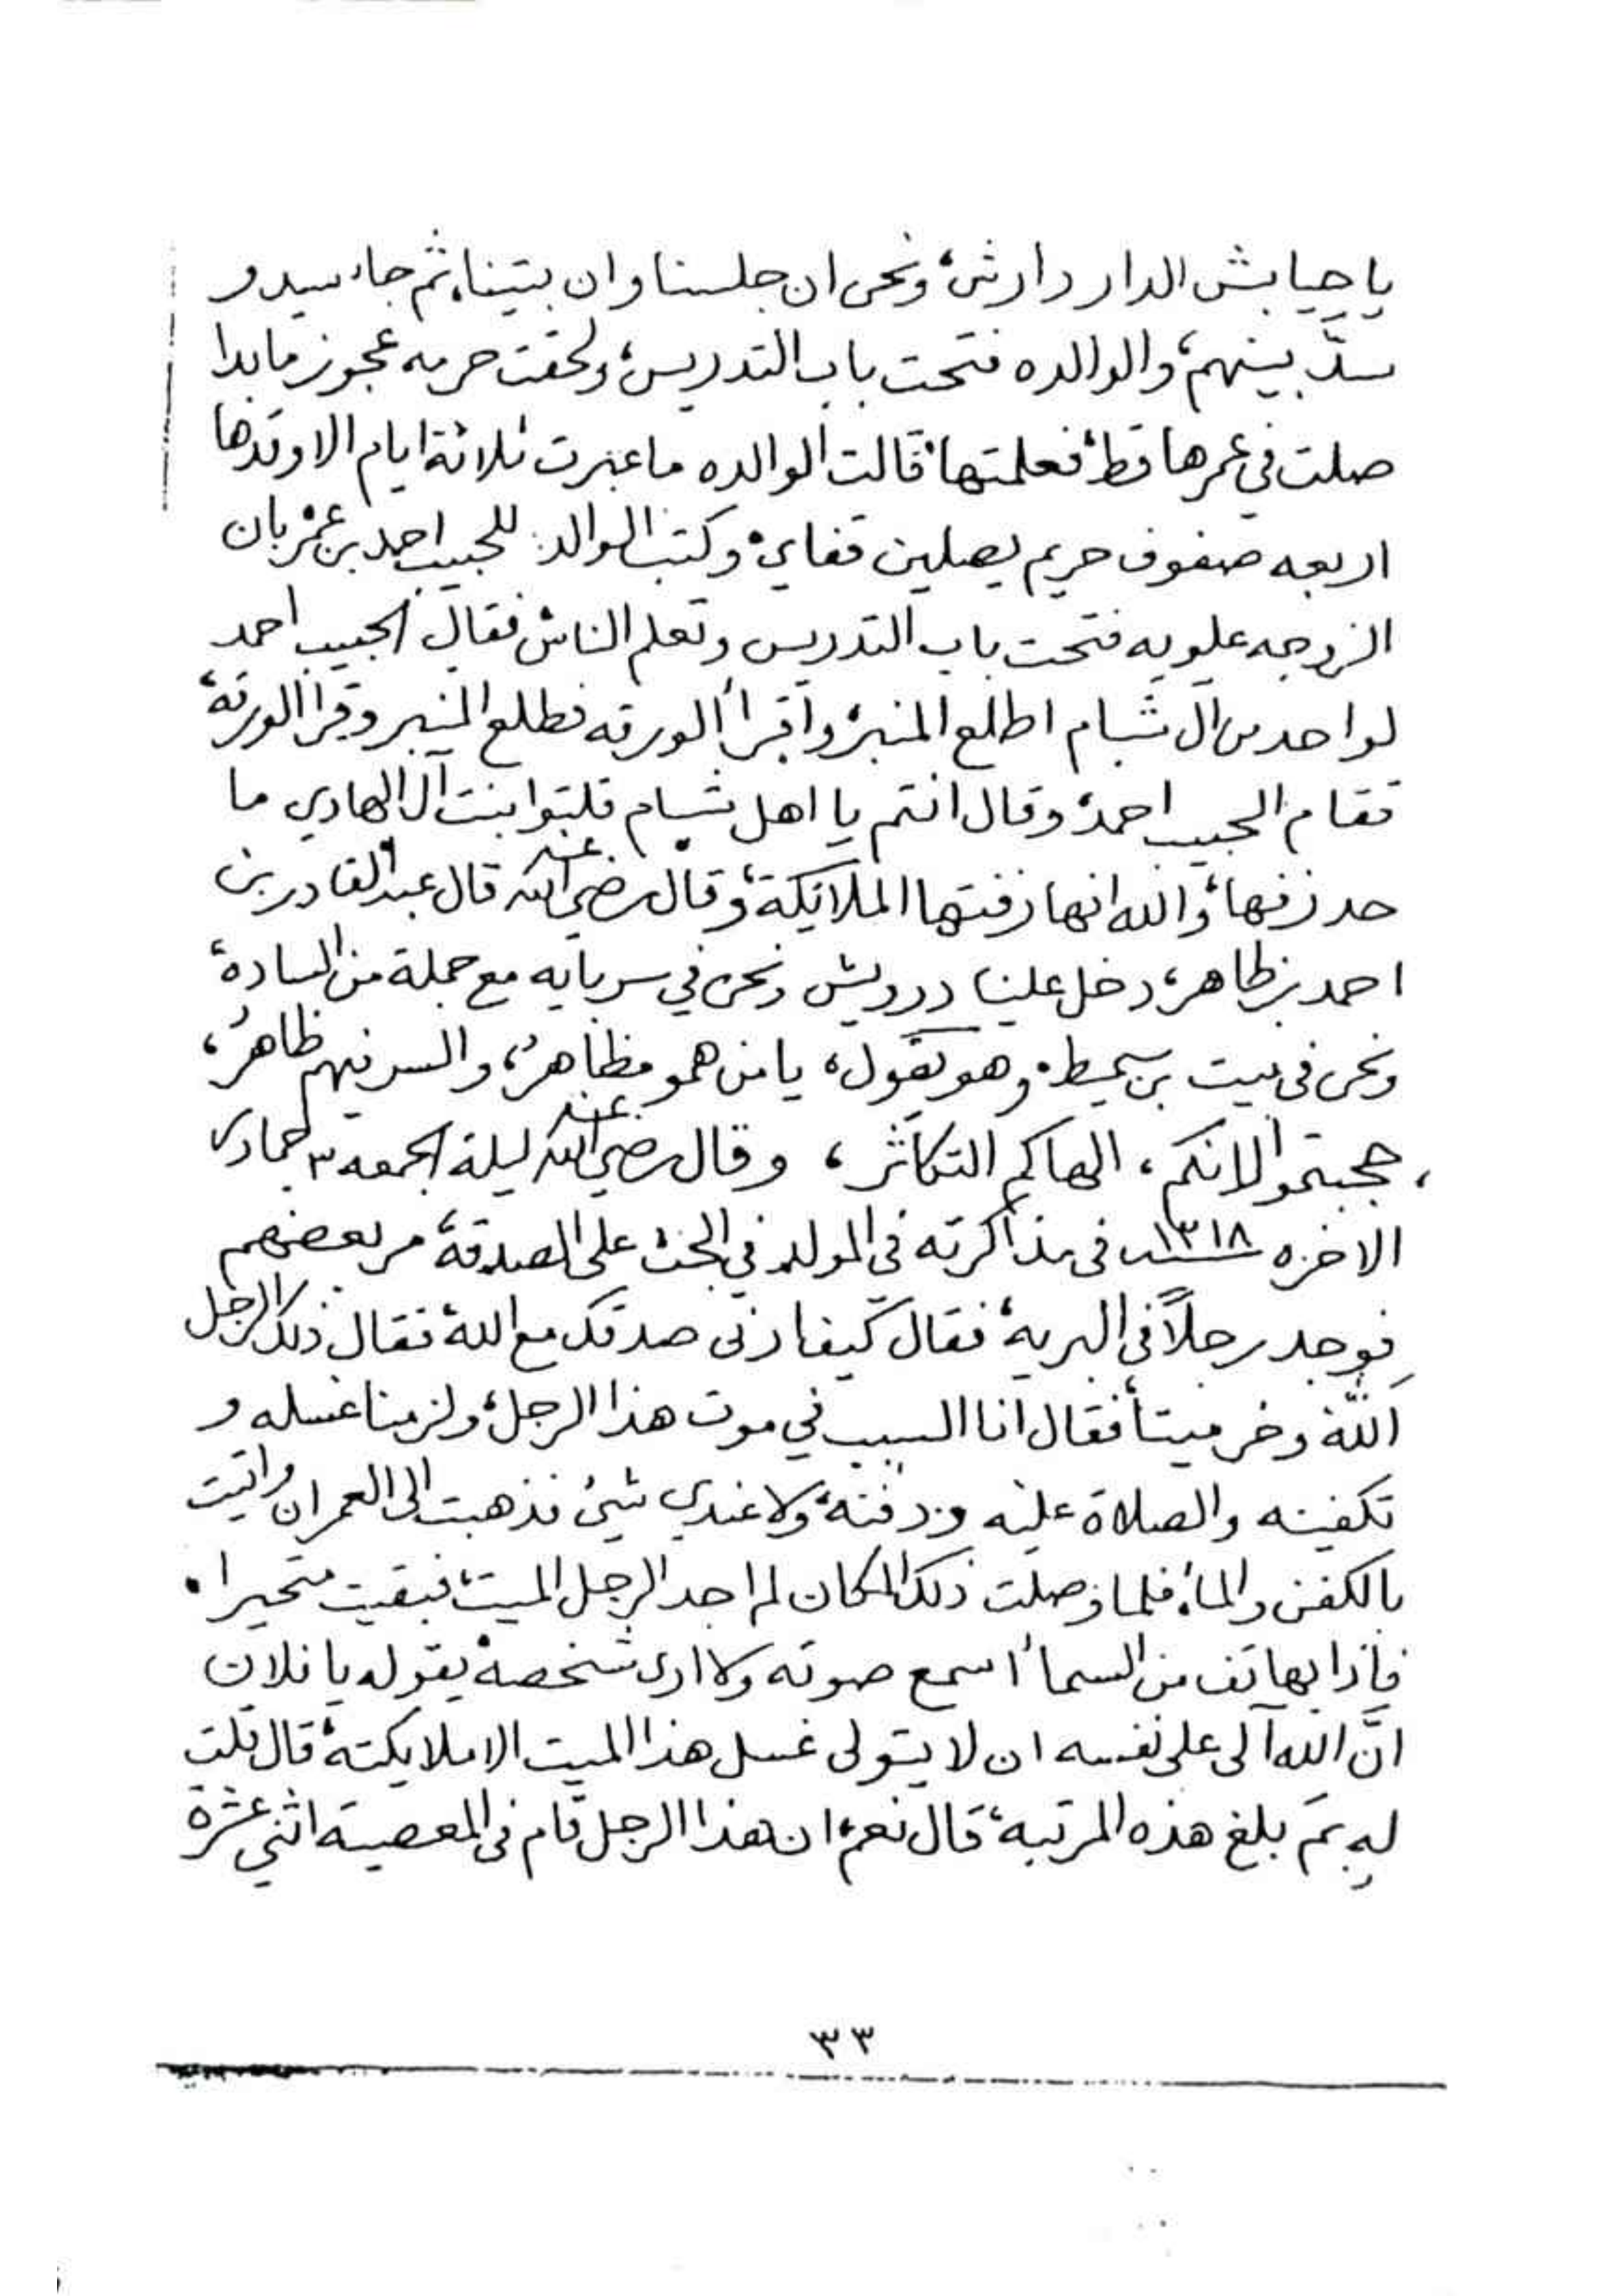 يا حيابش الدار دارش، ونحن ان جلسنا وان بتينا، ثم جاء سيد و
سدّ بينهم، والوالده فتحت باب التدريس، ولحقت حرمه عجوز ما بدا
صلت في عمرها قط، فعلمتها، قالت الوالده ما عبرت ثلاثة ايام الا وقدها
اربعه صفوف حريم يصلين قفاي، وكتب الوالد للحبيب احمد بن عمر بان
الزوجه علويه فتحت باب التدريس وتعلم الناس، فقال الحبيب احمد
لواحد من ال شبام اطلع المنبر، واقرأ الورقه فطلع المنبر وقرأ الورقة،
فقام الحبيب احمد، وقال انتم يا اهل شبام قلبتوا بنت آل الهادي ما
حد زفها، والله انها زفتها الملائكة، وقال رضي الله عنه قال عبد القادر بن
احمد بن طاهر، دخل علينا درويش ونحن في سربايه مع جملة من السادة،
ونحن في بيت بن سميط، وهو يقول، يا من همو مظاهرُ، والسر فيهم ظاهرُ،
، حجبتموا لانكم، الهاكم التكاثر، وقال رضي الله عنه ليلة الجمعه ٣ جمادى
الاخره سنة ١٣١٨ في مذاكرته في المولد في الحث على الصدقة، مر بعضهم
فوجد رجلاً في البرية، فقال كيف ارى صدقك مع الله، فقال ذلك الرجل
اَللّه، وخر ميتاً، فقال انا السبب في موت هذا الرجل، ولزمنا غسله و
تكفينه والصلاة عليه ودفنه، ولا عندي شيئ فذهبت الى العمران، واتيت
بالكفن والماء، فلما وصلت ذلك المكان لم اجد الرجل الميت، فبقيت متحيرا،
فإذا بهاتف من السماء اسمع صوته ولا ارى شخصه، يقول يا فلان
انَّ الله آلى على نفسه ان لا يتولى غسل هذا الميت الا ملايكته، قال قلت
له بمَ بلغ هذه المرتبه، قال نعم، ان هذا الرجل قام في المعصية اثني عشرة
٣٣